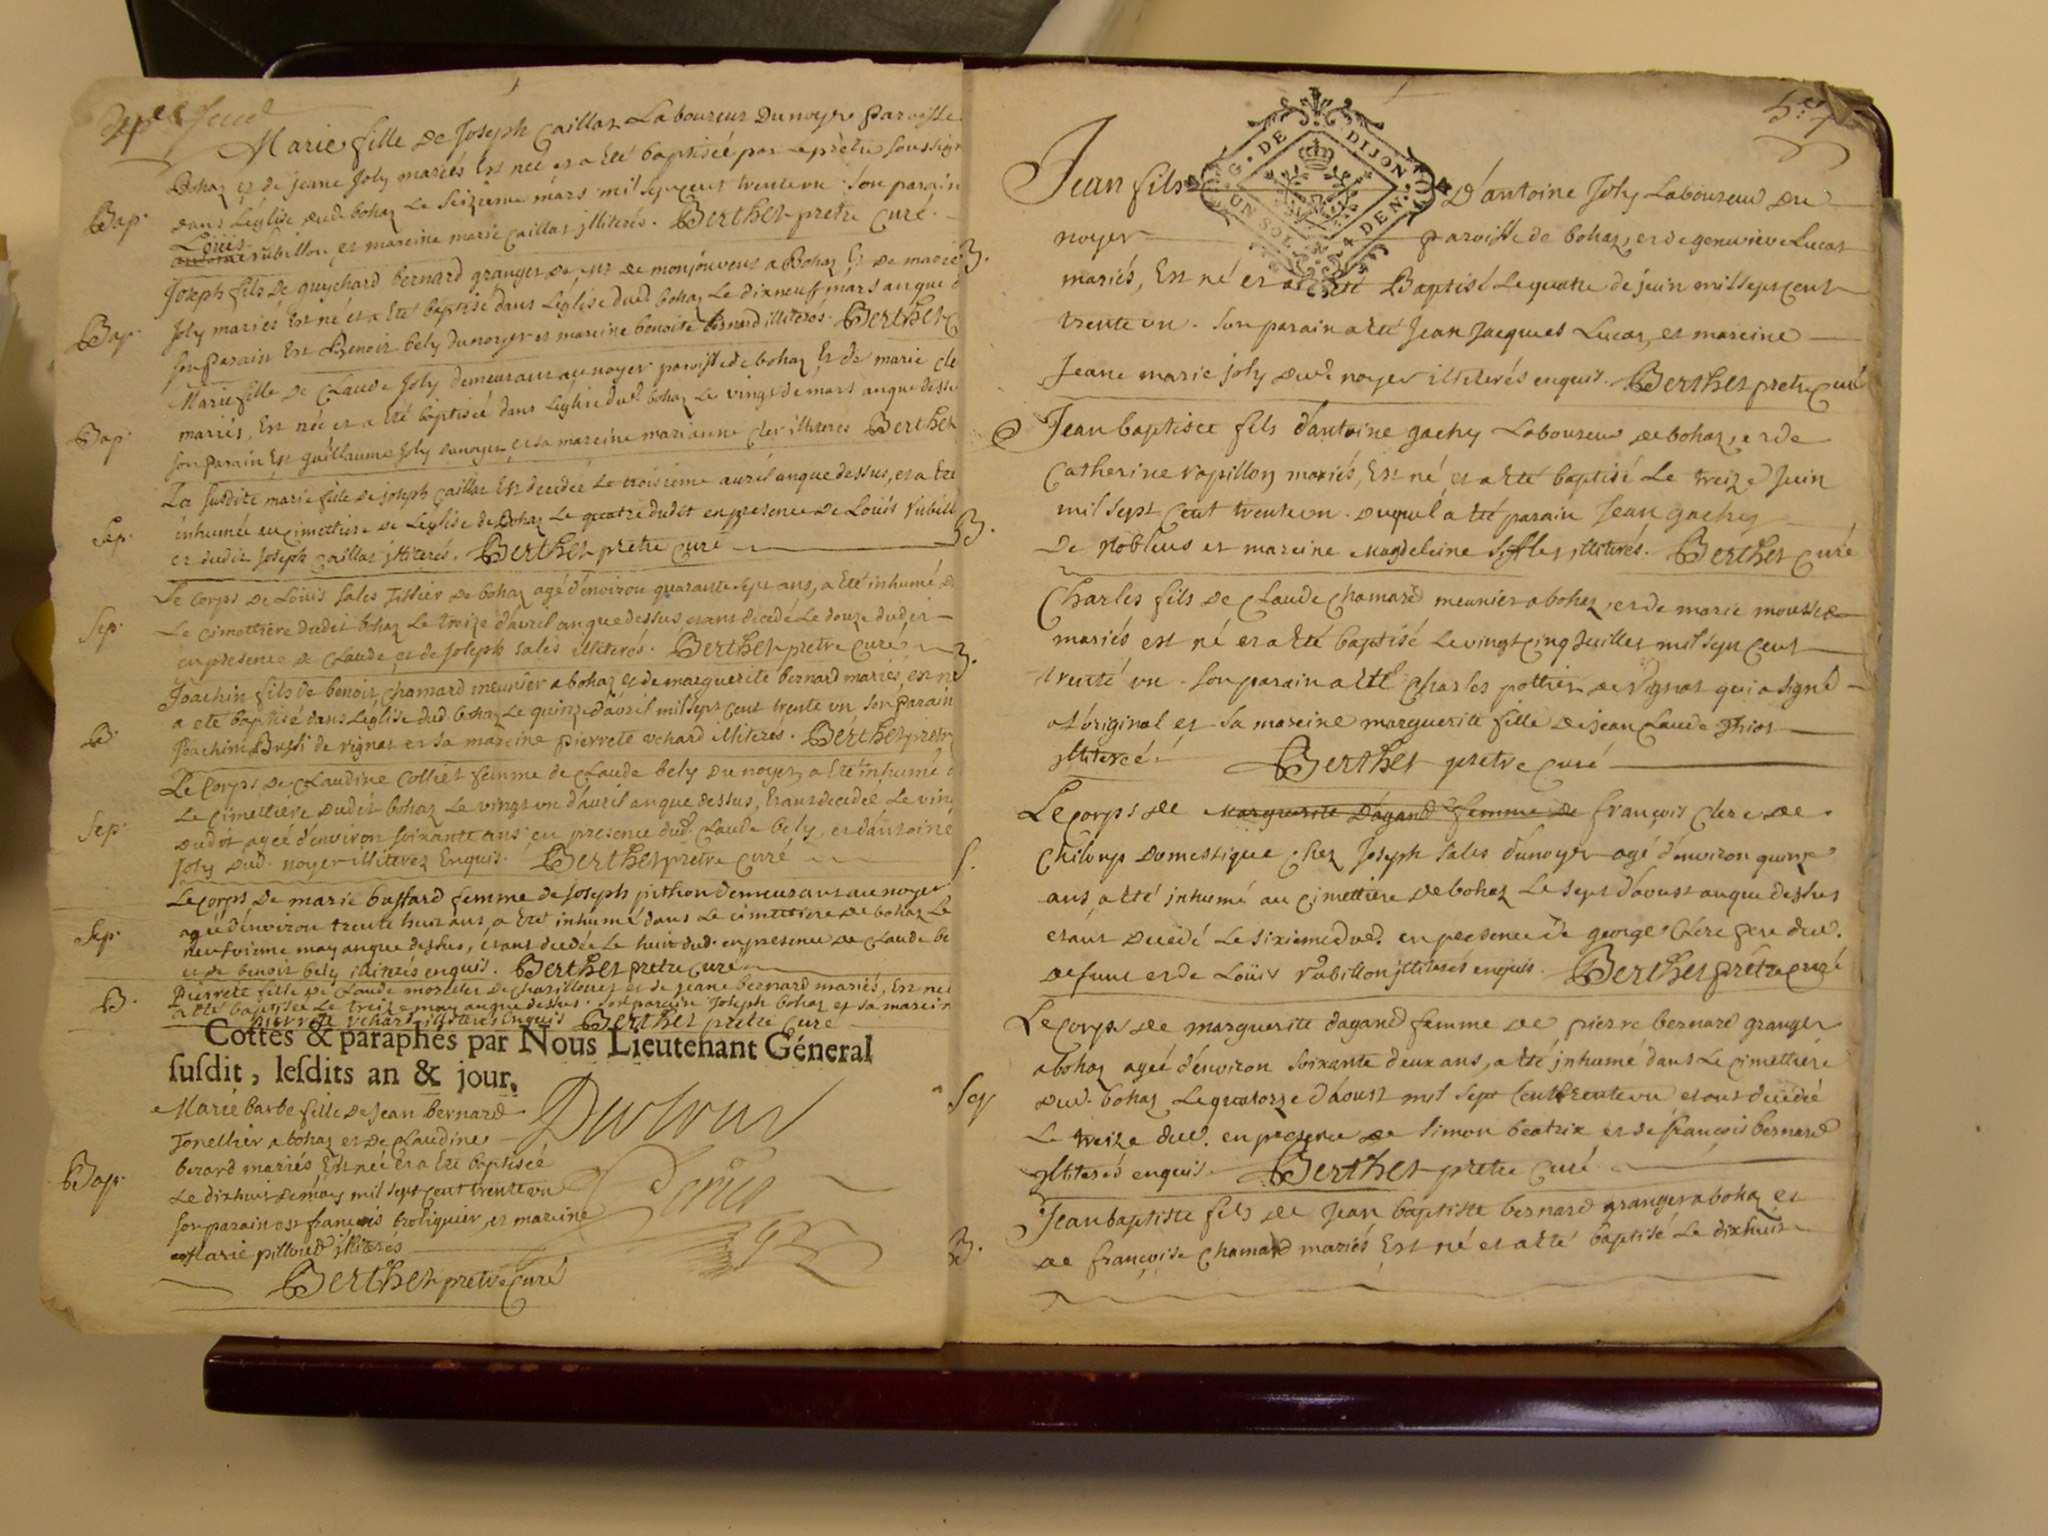 Marie fille de Joseph Caillat Laboureur Dunoyer Paroisse
Bohaz et de jeane Joly mariés Est neé et a Eté baptiseé par le prètre soussign
Bap. dans Léglise dud. bohaz le seizieme mars mil sept cent trente un son parain
Loüis
antoine rubillon, et mareine marie caillat illiterés. Berthet pretre curé.
Joseph fils de guychard bernard granger de de monjouvent a Bohaz Et de marie
Bap. Joly mariés Est né et a Eté baptisé dans Léglise dud. bohaz Le dixneuf mars an que d
son Parain Est Benoit bely dunoyer et mareine benoite bernard illiterés. Berthet
Marie fille de Claude Joly demeurant au noyer paroisse de bohaz Et de marie cle
Bap. mariés, Est neé et a Eté baptiseé dans Léglise dud. bohaz Le vingt de mars an que dessu
son Parain Est guillaume Joly dunoyer, et sa mareine marianne cler illiteres Berthet
La susdite marie fille de joseph caillat Est decedeé Le troisieme avril an que dessus, et a Eté
Sep. inhumée au cimettiere de Leglise de Bohaz Le quatre dudit en presence de Loüis Rubill
et dudit Joseph Caillat illiterés. Berthet pretre curé
Le Corps de Loüis Sales Tissier de bohaz agé d'environ quarante sept ans, a Eté inhumé d
Sep. Le cimettiere dudit bohaz Le treize d'avril an que dessus etant decedé Le douze dudit
en presence de Claude et de Joseph Sales illiterés. Berthet pretre curé
Joachin fils de benoit chamard meunier a bohaz et de marguerite bernard mariés, est né
B. a eté baptisé dans Léglise dud. bohaz Le quinze d'avril mil sept cent trente un son Parain
Joachin de rignat et sa mareine pierrete vehard illiterés. Berthet pretre
Le Corps de Claudine Colliet femme de Claude bely dunoyer, a Eté inhumé d
Sep. Le cimettiere dudit bohaz Le vingt un d'avril an que dessus, Etant decedeé Le vin
dudit ageé d'environ soixante ans en presence dud. Claude bely, et d'antoine
Joly dud. noyer illiterez Enquis. Berthet pretre curé
Le corps de marie buffard femme de Joseph pithion demeurant au noyer
Sep. ageé d'environ trente huit ans, a Eté inhumé dans Le cimettiere de bohaz Le
neufvieme may an que dessus, etant decedeé Le huit dud. en presence de Claude be
et de benoit bely illiterés enquis. Berthet pretre curé
B. Pierrete fille de Claude de et de jeane bernard mariés, Est neé
a Eté baptiseé Le treize may an que dessus. son parain Joseph bohaz et sa marein
pierrete vehard illiterés Enquis Berthet pretre curé
Cottés & paraphés par Nous Lieutenant Géneral
susdit, lesdits an & jour.
Marie barbe fille de Jean bernard
Tonellier a bohaz et de Claudine
Bap. berard mariés Est neé et a Eté baptiseé
Le dixhuit de may mil sept cent trente un
son parain est françois et mareine
Marie pilloud illiterés
Berthet pretre curé
G. DE DIJON
UN SOL 4 DEN.
Jean fils D'antoine Joly Laboureur du
noyer paroisse de bohaz, et de genevieve Lucat
B. mariés, Est né et a eté Baptisé Le quatre de juin mil sept cent
trente un. son parain a eté Jean Jacques Lucat, et mareine
Jeane marie joly dud. noyer illiterés enquis. Berthet pretre curé
Jean baptiste fils d'antoine gachy Laboureur de bohaz, et de
Catherine rapillon mariés, Est né, et a Eté baptisé Le treize Juin
B. mil sept cent trente un. duquel a eté parain Jean gachy
De Nobleus et mareine Magdeleine illiterés. Berthet curé
Charles fils de Claude Chamard meunier a bohaz, et de marie
B. mariés est né et a Eté baptisé Le vingt cinq Juillet mil sept cent
trente un. son parain a Eté Charles pottier de rignat qui a signé
a L'original et sa mareine marguerite fille de jean Claude
illitereé. Berthet pretre curé
Le corps de marguerite dagand femme de françois Clere de
S. Chiloup domestique chez Joseph Sales dunoyer agé d'environ quinze
ans, a eté inhumé au cimettiere de bohaz Le sept d'aoust an que dessus
etant decedé Le sixieme dud. en presence de george Clere pere dud.
defunt et de Loüis rubillon illiterés enquis. Berthet prétre curé
Le corps de marguerite dagand femme de pierre bernard granger
a bohaz ageé d'environ soixante deux ans, a eté inhumé dans Le cimettiere
Sep dud. bohaz Le quatorze d'aoust mil sept Cent trente un etant decedeé
Le treize dud. en presence de Simon beatrix et de françois bernard
illiterés enquis. Berthet pretre curé
Jean baptiste fils de Jean baptiste bernard granger a bohaz et
B. de françoise Chamard mariés Est né et a eté baptisé Le dixhuit